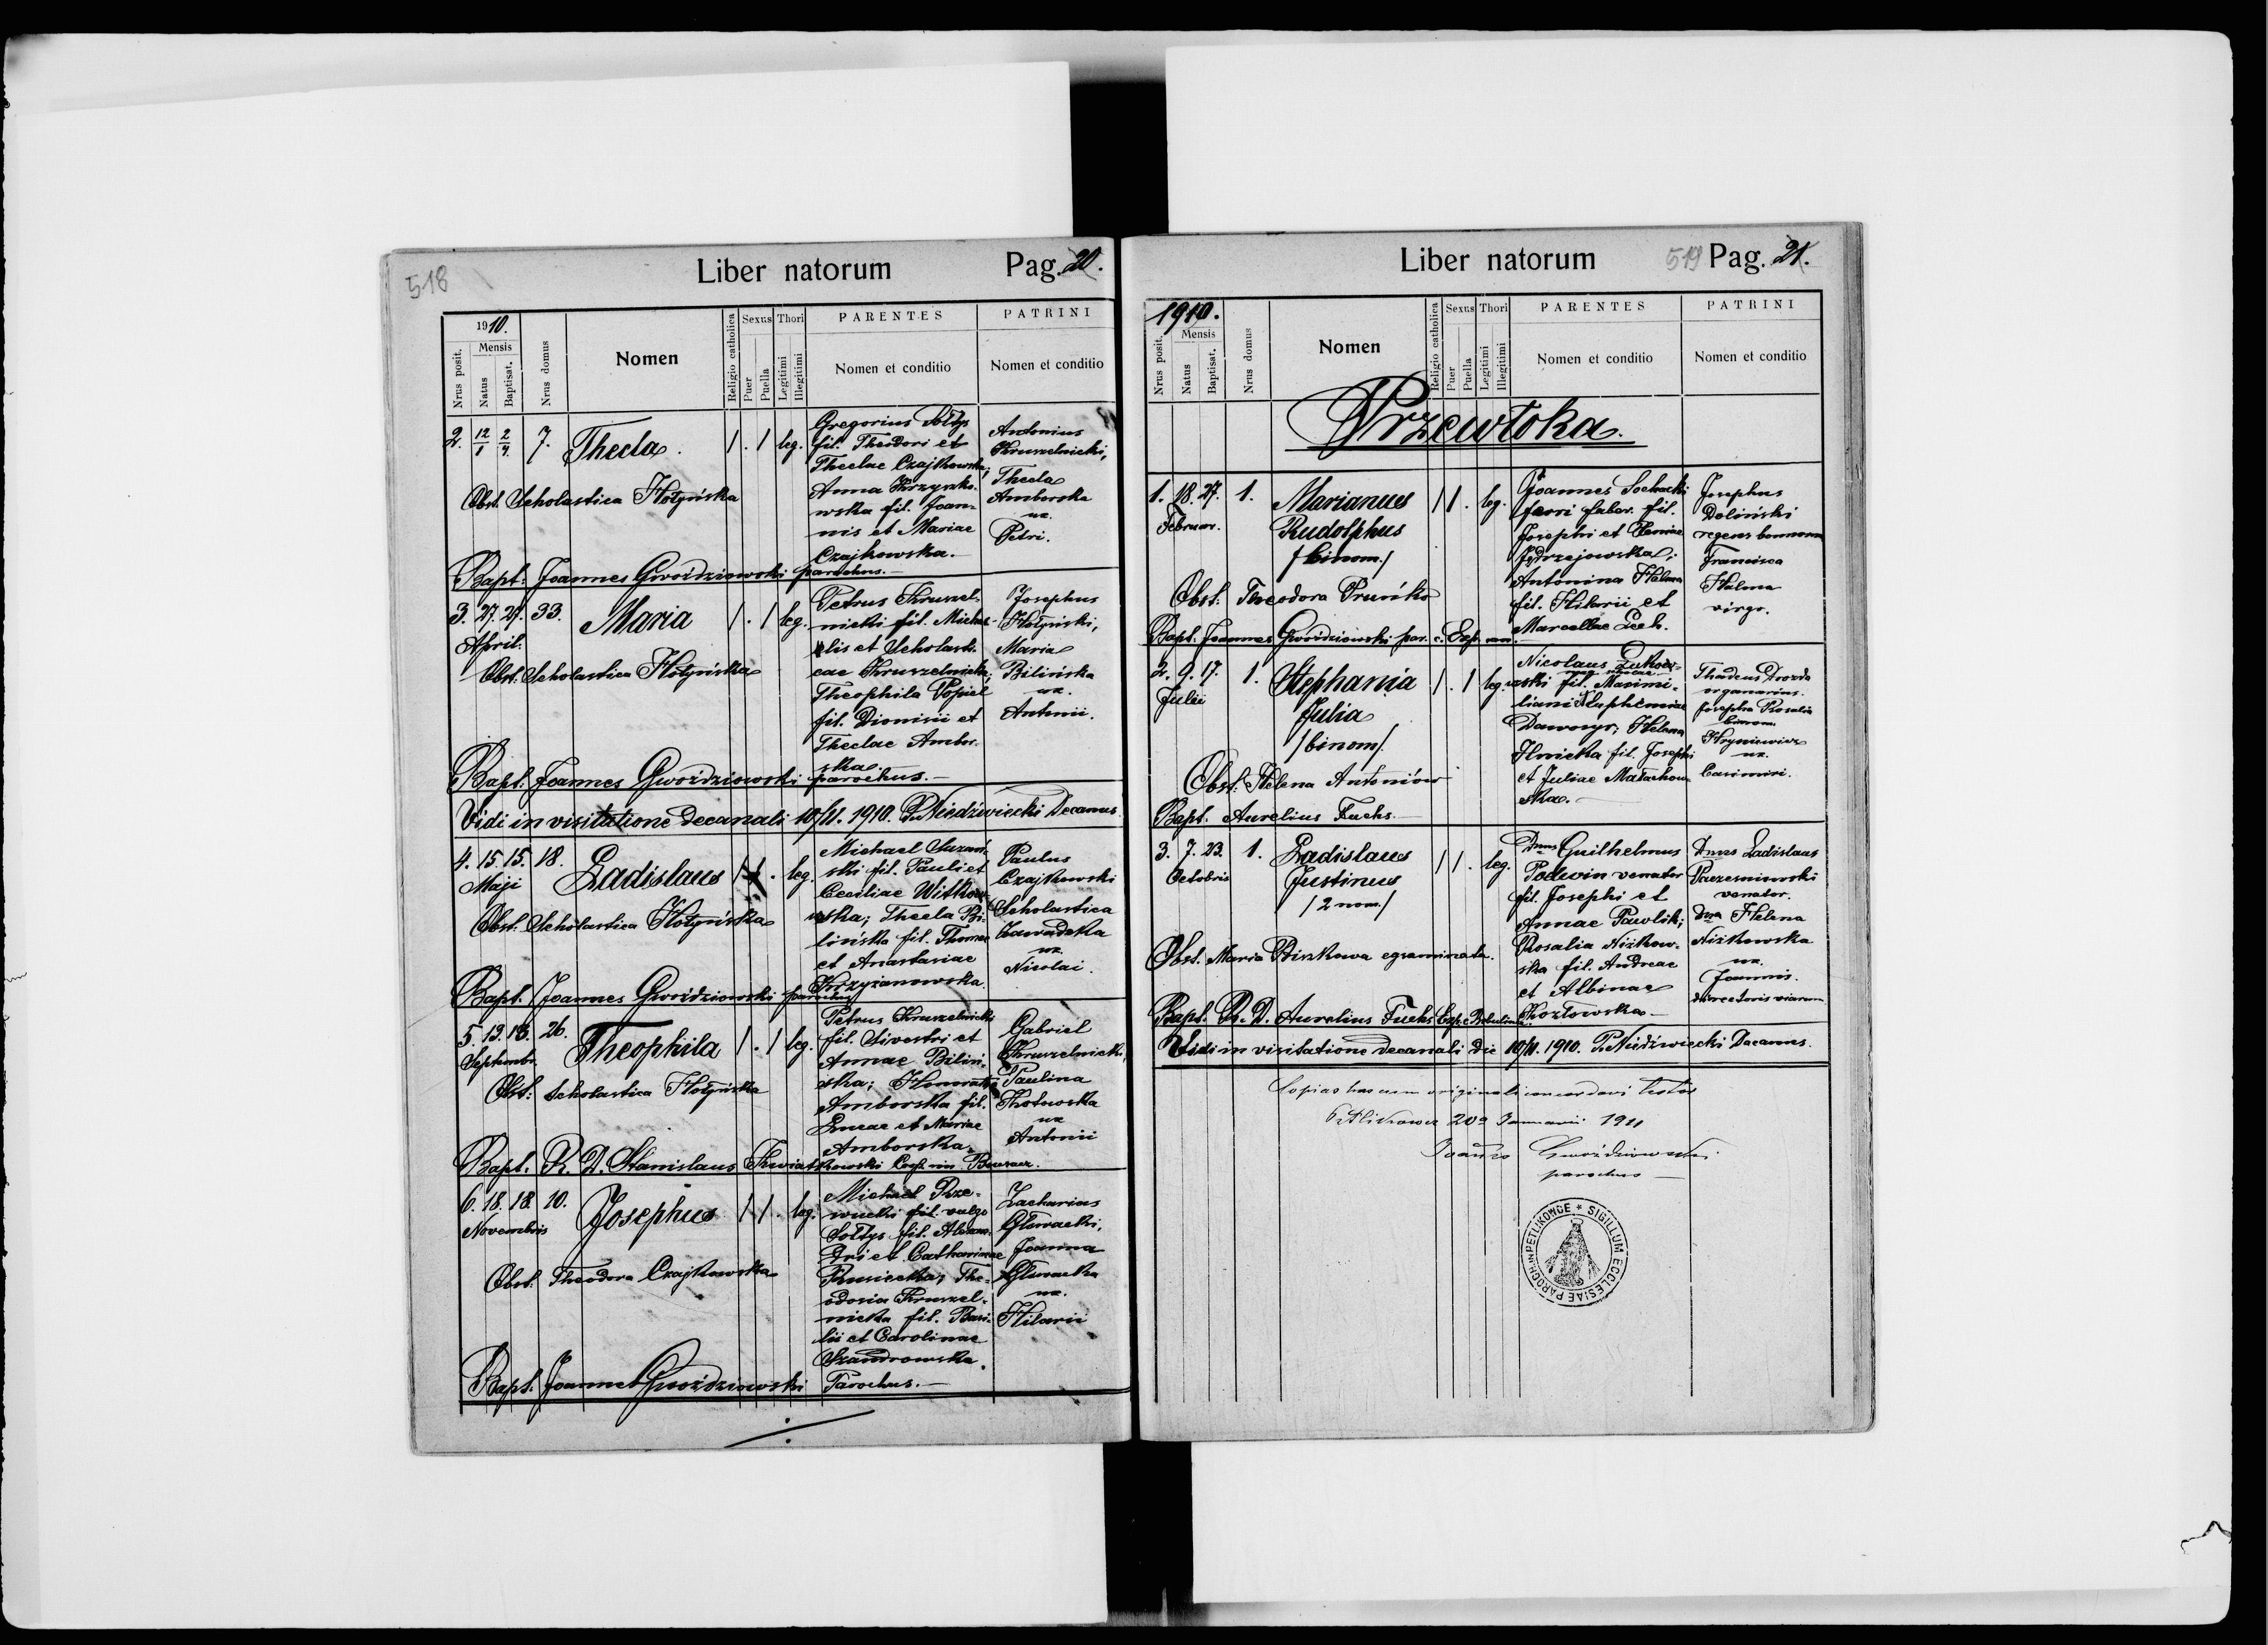 518
Liber natorum Pag. 20.
1910.
Nrus posit.
Mensis
Natus
Baptisat.
Nrus domus
Nomen
Religio catholica
Sexus
Puer
Puella
Thori
Legitimi
Illegitimi
PARENTES
Nomen et conditio
PATRINI
Nomen et conditio
2. 12/1 2/4. 7. Thecla. 1 . 1 leg.
Obst. Scholastica Hołyńska
Gregorius Sołtys
fil. Theodori et
Theclae Czajkowska;
Anna Krzyszko-
wska fil. Joan-
nis et Mariae
Czajkowska.
Antonius
Kruszelnicki,
Thecla
Amborska
ux.
Petri.
Bapt: Joannes Gwoździowski parochus.
3. 27. 27. 33. Maria 1 . 1 leg.
April.
Obst. Scholastica Hołyńska
Petrus Kruszel-
nicki fil. Micha-
elis et Scholasti-
cae Kruszelnicka;
Theophila Popiel
fil. Dionisii et
Theclae Ambor-
ska.
Josephus
Hołyński,
Maria
Bilińska
ux.
Antonii.
Bapt. Joannes Gwoździowski parochus.
Vidi in visitatione decanali 10/11. 1910. P. Niedźwiecki Decanus.
4. 15. 15. 18. Ladislaus 1 1 . leg.
Maji
Obst: Scholastica Hołyńska
Michael
fil. Pauli et
Ceciliae Witkow-
ska; Thecla Bi-
lińska fil. Thomae
et Anastasiae
Krzyżanowska.
Paulus
Czajkowski
Scholastica
Zawadzka
ux.
Nicolai.
Bapt. Joannes Gwoździowski parochus
5. 13. 18. 26. Theophila 1 . 1 leg.
Septembr.
Obst: Scholastica Hołyńska
Petrus Kruszelnicki
fil. Sivestri et
Annae Biliń-
ska; Honorata
Amborska fil.
Lucae et Mariae
Amborska.
Gabriel
Kruszelnicki,
Paulina
ux
Antonii
Bapt. R. D. Stanislaus Kwiatkowski
6. 18. 18. 10. Josephus 1 1 . leg.
Novembris
Obst: Theodora Czajkowska
Michael Rze-
wucki fil. vulgo
Sołtys fil. Alexan-
dri et Catharinae
The-
odosia Kruszel-
nicka fil. Basi-
lii et Carolinae
Szandrowska.
Zacharias
Głowacki,
Joanna
Głowacka
ux.
Hilarii
Bapt. Joannes Gwoździowski Parochus.
Liber natorum 519 Pag. 21.
1910.
Nrus posit.
Mensis
Natus
Baptisat.
Nrus domus
Nomen
Religio catholica
Sexus
Puer
Puella
Thori
Legitimi
Illegitimi
PARENTES
Nomen et conditio
PATRINI
Nomen et conditio
Przewłoka.
1. 18. 27. 1. Marianus 1 1 . leg.
Februar. Rudolphus
/binom./
Obst: Theodora Pruńko
Joannes Sochacki
ferri faber fil.
Josephi et
Jędrzejowska;
Antonina Halma
fil. Hilarii et
Marcellae Lech.
Josephus
Doliński
regens bonorum
Francisca
Halma
virgo.
Bapt. Joannes Gwoździowski par.
2. 9. 17. 1. Stephania 1 . 1 leg.
Julii Julia
/binom/.
Obst: Helena Antoniów
Nicolaus Żukow-
ski fil. Maximi-
liani Euphemiae
Helena
Ilnicka fil. Josephi
et Juliae Małachow-
ska.
Thadeus Drozda
organarius.
Josepha Rosalia
binom.
Hryniewicz
ux.
Casimiri.
Bapt. Aurelius Fuchs.
3. 7. 23. 1. Ladislaus 1 1 . leg.
Octobris Justinus
/2 nom./
Obst. Maria Biszkowa egzaminata.
Dnus Guilhelmus
Podewin venator
fil. Josephi et
Annae Pawlik;
Rosalia Niżkow-
ska fil. Andreae
et Albinae
Kozłowska
Dnus Ladislaus
venator.
Dna Helena
Niżkowska
ux.
Joannis.
directoris viarum
Bapt. R. D. Aurelius Fuchs
Vidi in visitatione decanali die 10/11. 1910. P. Niedźwiecki Decanus.
Copias has cum originali concordari testor
20a Januarii 1911
Joannes Gwoździowski
parochus
SIGILLUM ECCLESIAE PAROCH. IN PETLIKOWCE *